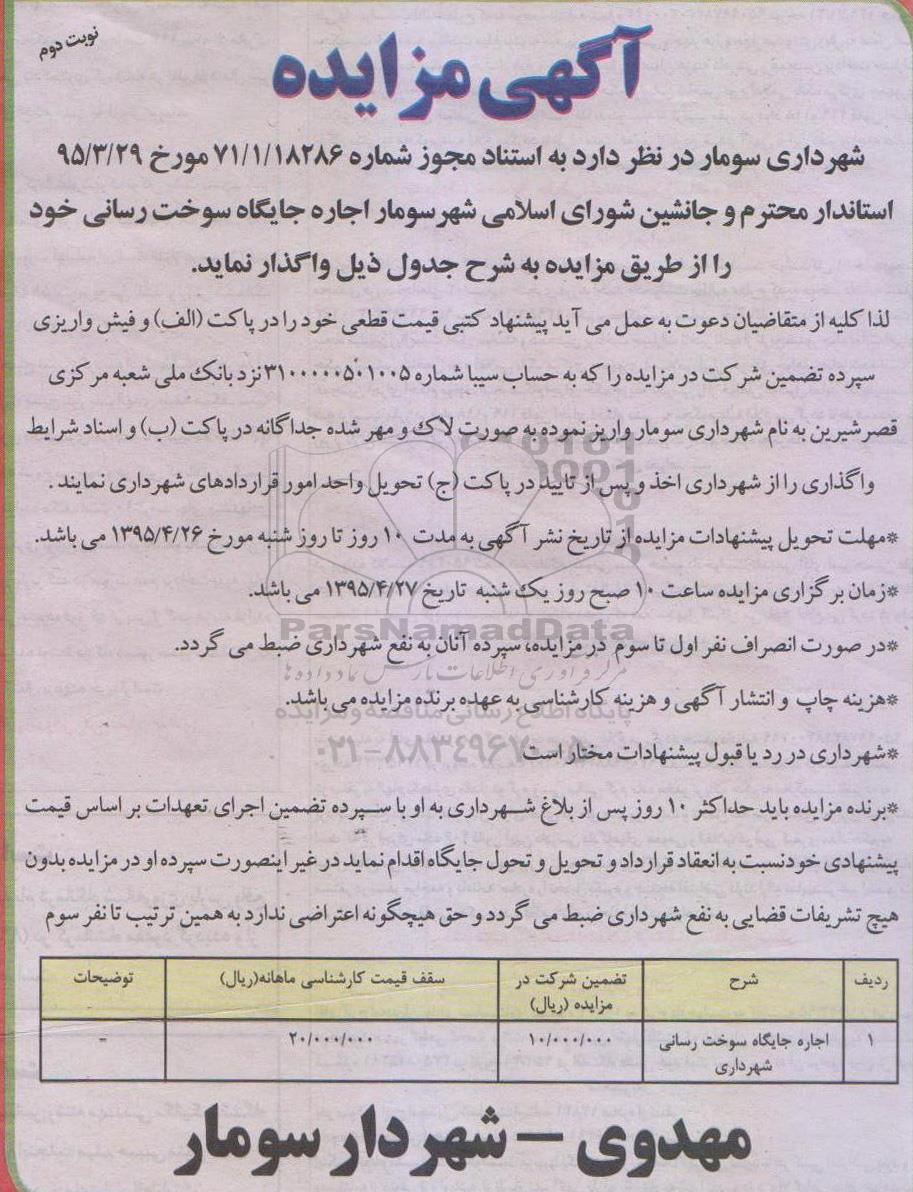 نوبت دوم
آگهی مزایده
شهرداری سومار در نظر دارد به استناد مجوز شماره ۷۱/۱/۱۸۲۸۶ مورخ ۹۵/۳/۲۹
استاندار محترم و جانشین شورای اسلامی شهرسومار اجاره جایگاه سوخت رسانی خود
را از طریق مزایده به شرح جدول ذیل واگذار نماید.
لذا کلیه از متقاضیان دعوت به عمل می آید پیشنهاد کتبی قیمت قطعی خود را در پاکت (الف) و فیش واریزی
سپرده تضمین شرکت در مزایده را که به حساب سیبا شماره ۳۱۰۰۰۰۰۵۰۱۰۰۵ نزد بانک ملی شعبه مرکزی
قصرشیرین به نام شهرداری سومار واریز نموده به صورت لاک و مهر شده جداگانه در پاکت (ب) و اسناد شرایط
واگذاری را از شهرداری اخذ و پس از تایید در پاکت (ج) تحویل واحد امور قراردادهای شهرداری نمایند .
*مهلت تحویل پیشنهادات مزایده از تاریخ نشر آگهی به مدت ۱۰ روز تا روز شنبه مورخ ۱۳۹۵/۴/۲۶ می باشد.
*زمان برگزاری مزایده ساعت ۱۰ صبح روز یک شنبه تاریخ ۱۳۹۵/۴/۲۷ می باشد.
ParsNamadData
*در صورت انصراف نفر اول تا سوم در مزایده، سپرده آنان به نفع شهرداری ضبط می گردد.
مرکز فرآوری اطلاعات پارس نماد داده ها
*هزینه چاپ و انتشار آگهی و هزینه کارشناسی به عهده برنده مزایده می باشد.
پایگاه اطلاع رسانی مناقصه و مزایده
*شهرداری در رد یا قبول پیشنهادات مختار است.
۰۲۱-۸۸۳۴۹۶۷۰-۵
*برنده مزایده باید حداکثر ۱۰ روز پس از بلاغ شهرداری به او با سپرده تضمین اجرای تعهدات بر اساس قیمت
پیشنهادی خود نسبت به انعقاد قرارداد و تحویل و تحول جایگاه اقدام نماید در غیر اینصورت سپرده او در مزایده بدون
هیچ تشریفات قضایی به نفع شهرداری ضبط می گردد و حق هیچگونه اعتراضی ندارد به همین ترتیب تا نفر سوم
ردیف شرح تضمین شرکت در مزایده (ریال) سقف قیمت کارشناسی ماهانه(ریال) توضیحات
۱ اجاره جایگاه سوخت رسانی شهرداری ۱۰/۰۰۰/۰۰۰ ۲۰/۰۰۰/۰۰۰ -
مهدوی – شهردار سومار